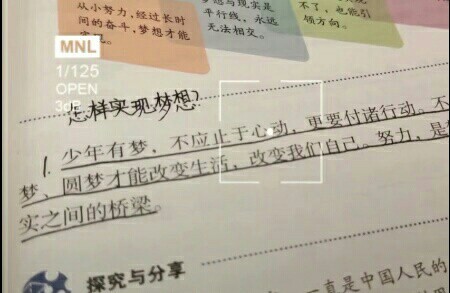 从小努力,经过长时
间的奋斗,梦想才能
梦想与现实是
平行线,永远
无法相交。
不了,也能引
领方向。
MNL
1/125
OPEN
怎样实现梦想?
1. 少年有梦,不应止于心动,更要付诸行动。不
梦、圆梦才能改变生活,改变我们自己。努力,是
实之间的桥梁。
探究与分享
直是中国人民的